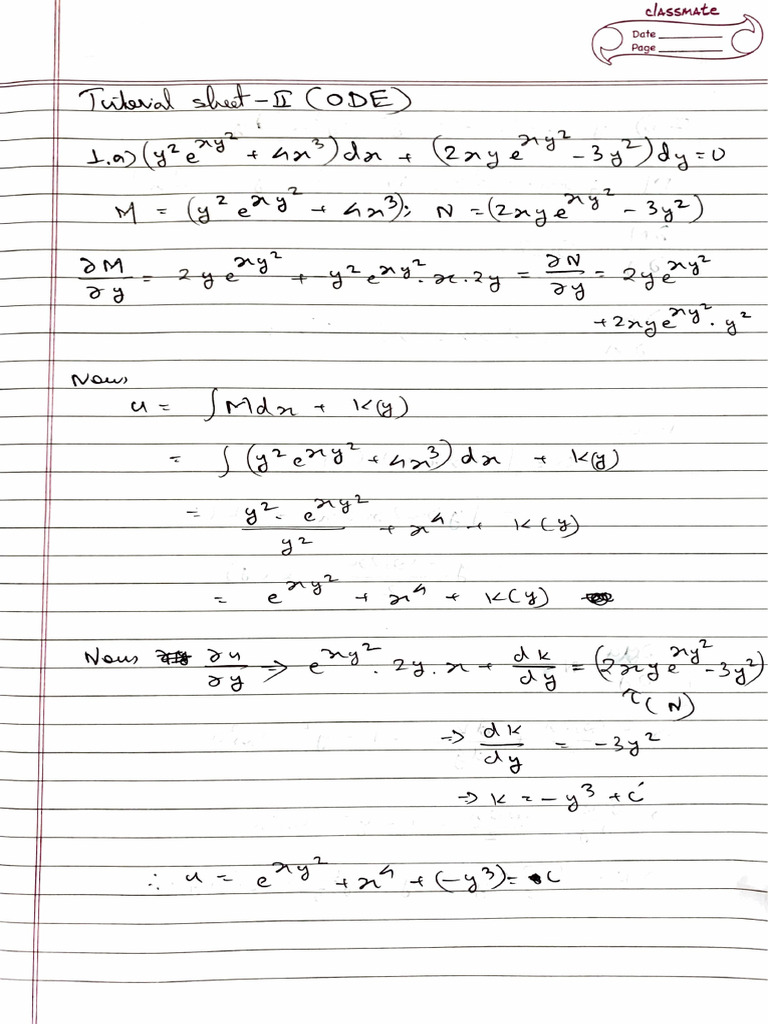 classmate
Date
Page
Tutorial sheet - II (ODE)
1.a) (y²e^{xy²} + 4x³)dx + (2xye^{xy²} - 3y²)dy = 0
M = (y²e^{xy²} + 4x³); N = (2xye^{xy²} - 3y²)
∂M/∂y = 2ye^{xy²} + y²e^{xy²}.x.2y = ∂N/∂y = 2ye^{xy²}
+2xye^{xy²}.y²
Now
u = ∫Mdx + k(y)
= ∫(y²e^{xy²} + 4x³)dx + k(y)
= y².e^{xy²}/y² + x⁴ + k(y)
= e^{xy²} + x⁴ + k(y)
Now ∂u/∂y => e^{xy²}.2y.x + dk/dy = (2xye^{xy²} - 3y²)
(N)
=> dk/dy = -3y²
=> k = -y³ + c'
∴ u = e^{xy²} + x⁴ + (-y³) = c